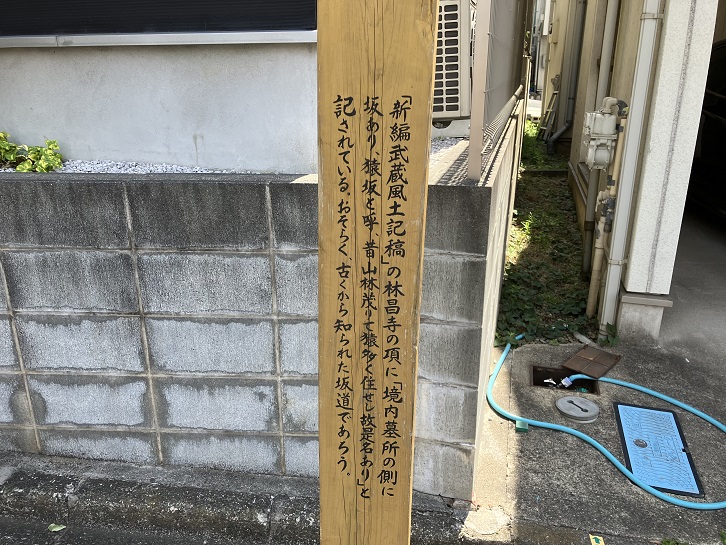 「新編武蔵風土記稿」の林昌寺の項に「境内墓所の側に
坂あり、猿坂と呼、昔山林茂りて猿多く住せし故是名あり」と
記されている。おそらく、古くから知られた坂道であろう。